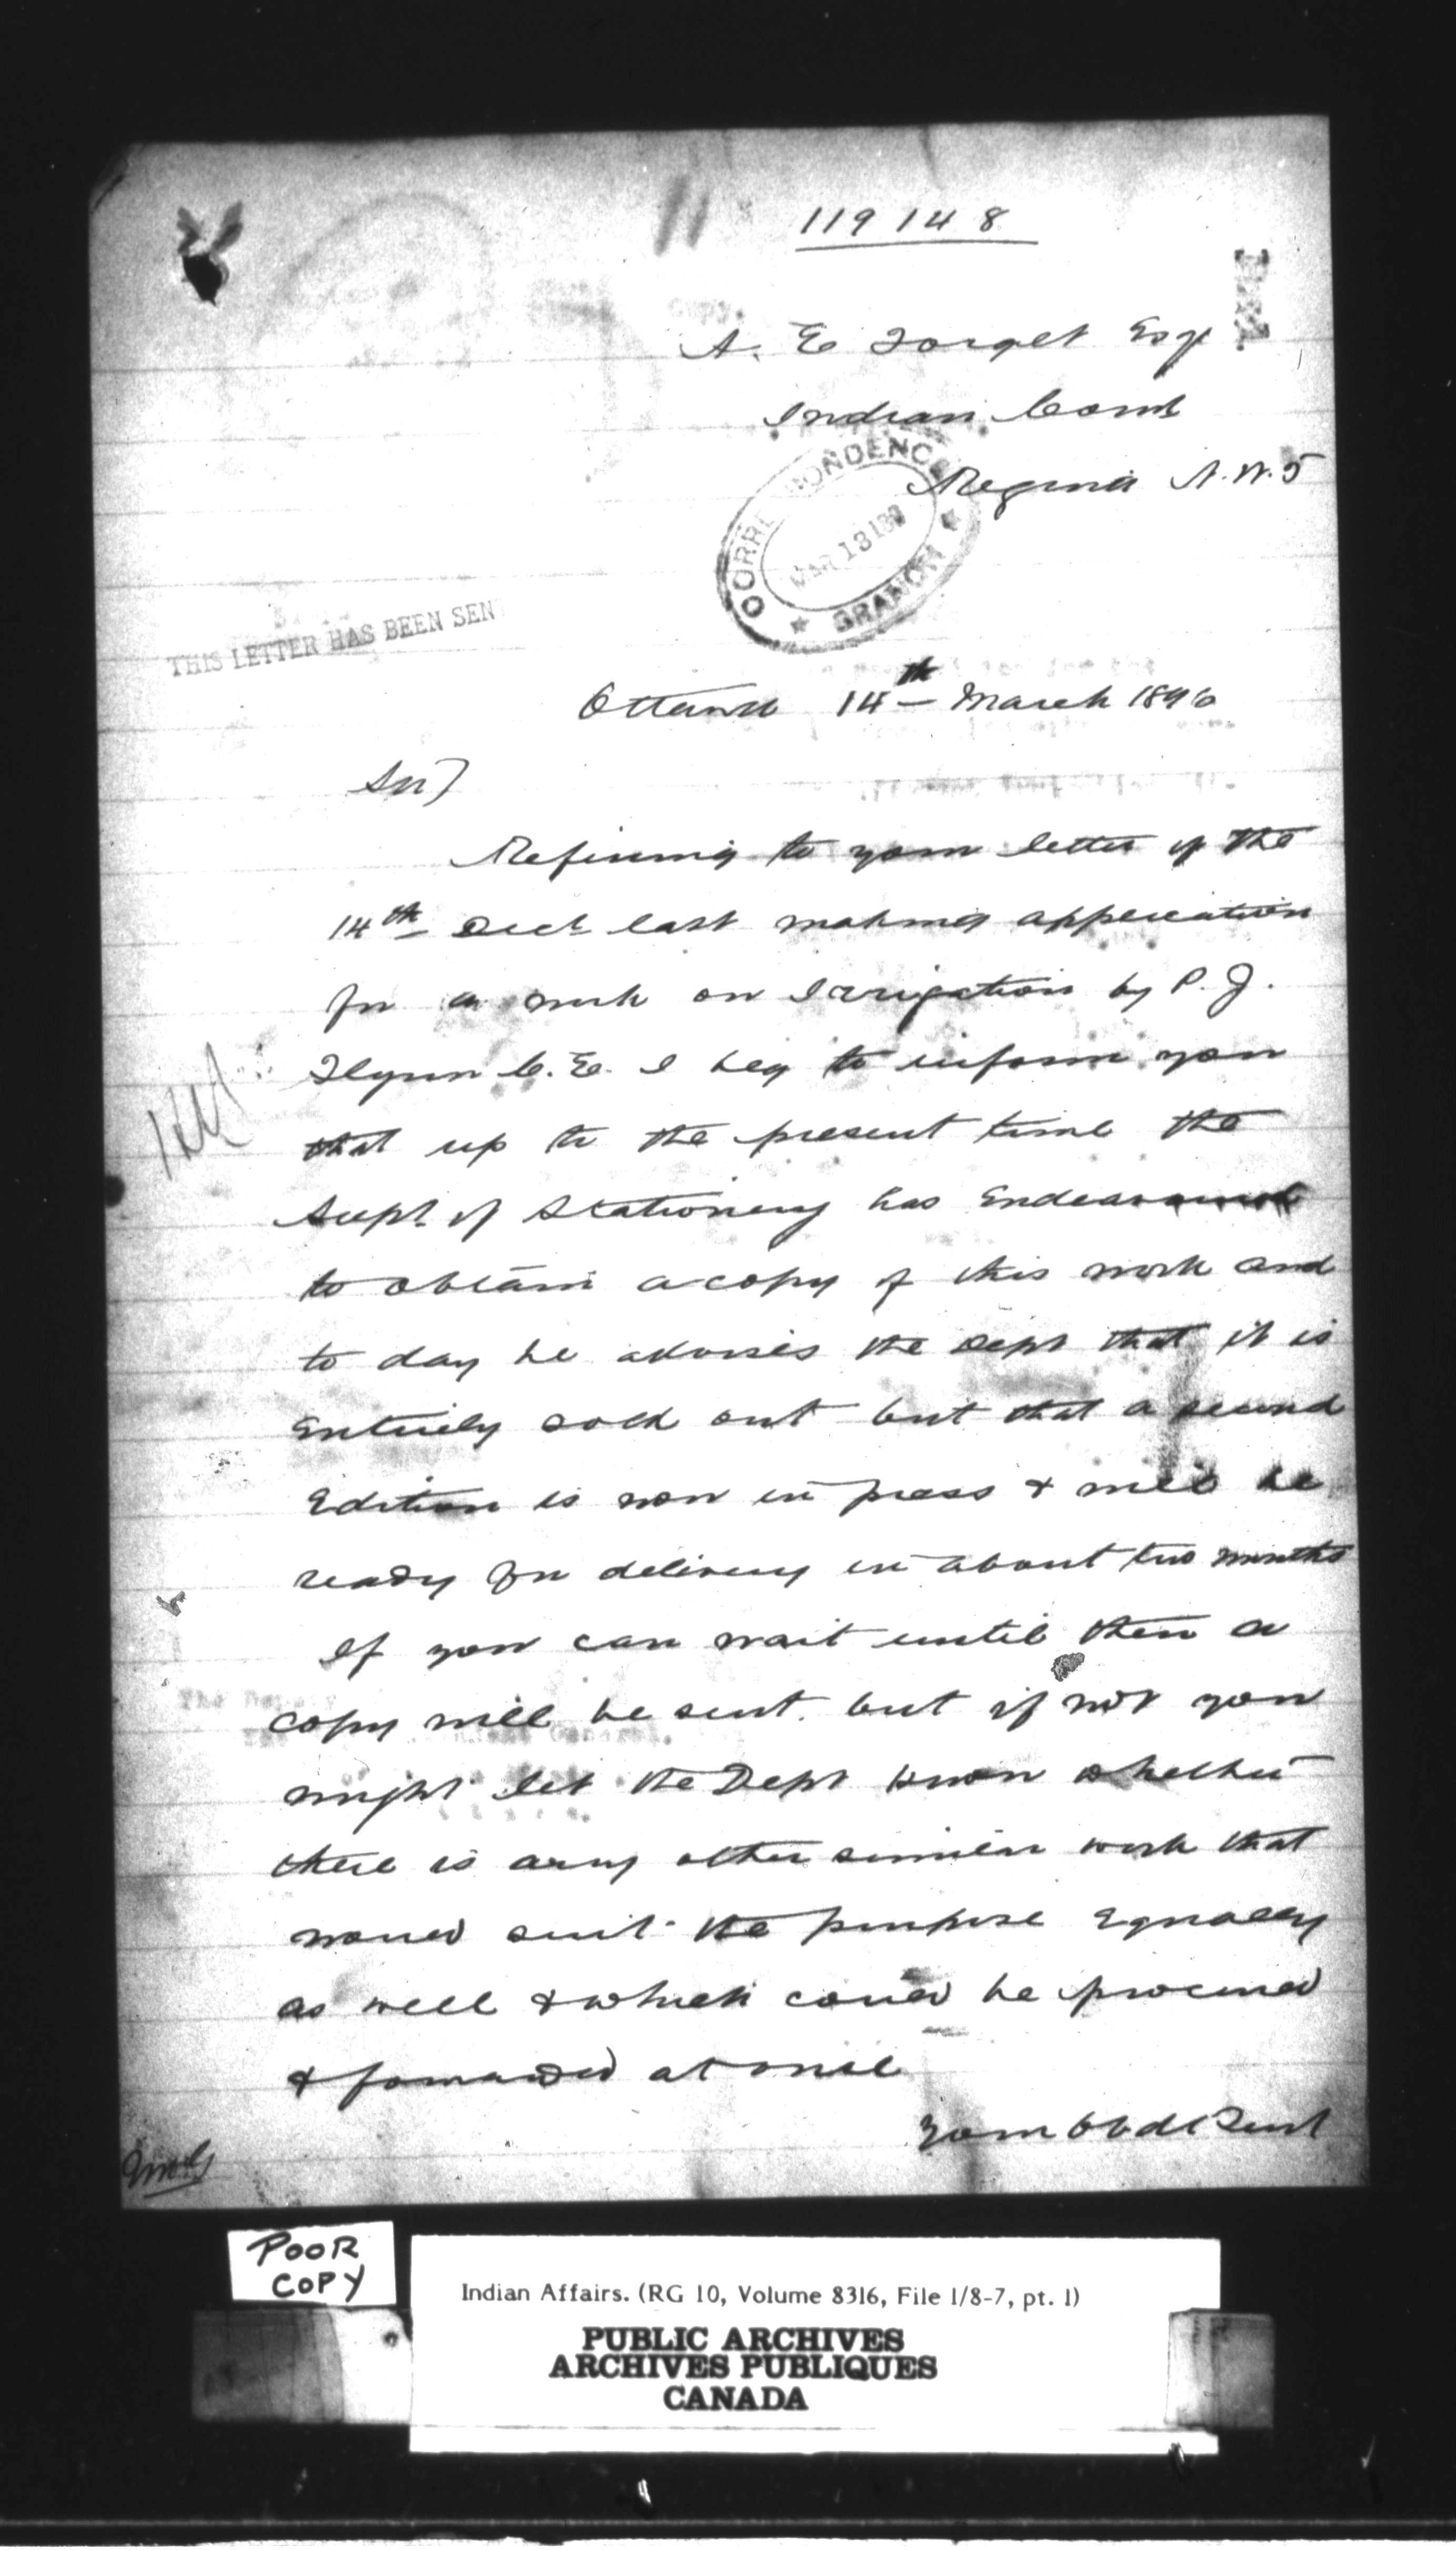 119148
A. E Forget Esq
Indian Comr
Regina N.W.T
CORRESPONDENCE
MAR 13 189
BRANCH
THIS LETTER HAS BEEN SEN
Ottawa 14th March 1896
Sir)
Referring to your letter of the
14th Decr last making application
for a work on Irrigation by P. J.
Flynn C.E. I beg to inform you
that up to the present time the
Supt of Stationery has Endeavoured
to obtain a copy of this work and
to day he advises the Dept that it is
Entirely sold out but that a second
Edition is now in press & will be
ready for delivery in about two months
If you can wait until then a
copy will be sent. but if not you
might let the Dept know whether
there is any other similar work that
would suit the purpose Equally
as well & which could be procured
& forwarded at once
Your Obdt Servt
POOR
COPY
Indian Affairs. (RG 10, Volume 8316, File 1/8-7, pt. 1)
PUBLIC ARCHIVES
ARCHIVES PUBLIQUES
CANADA